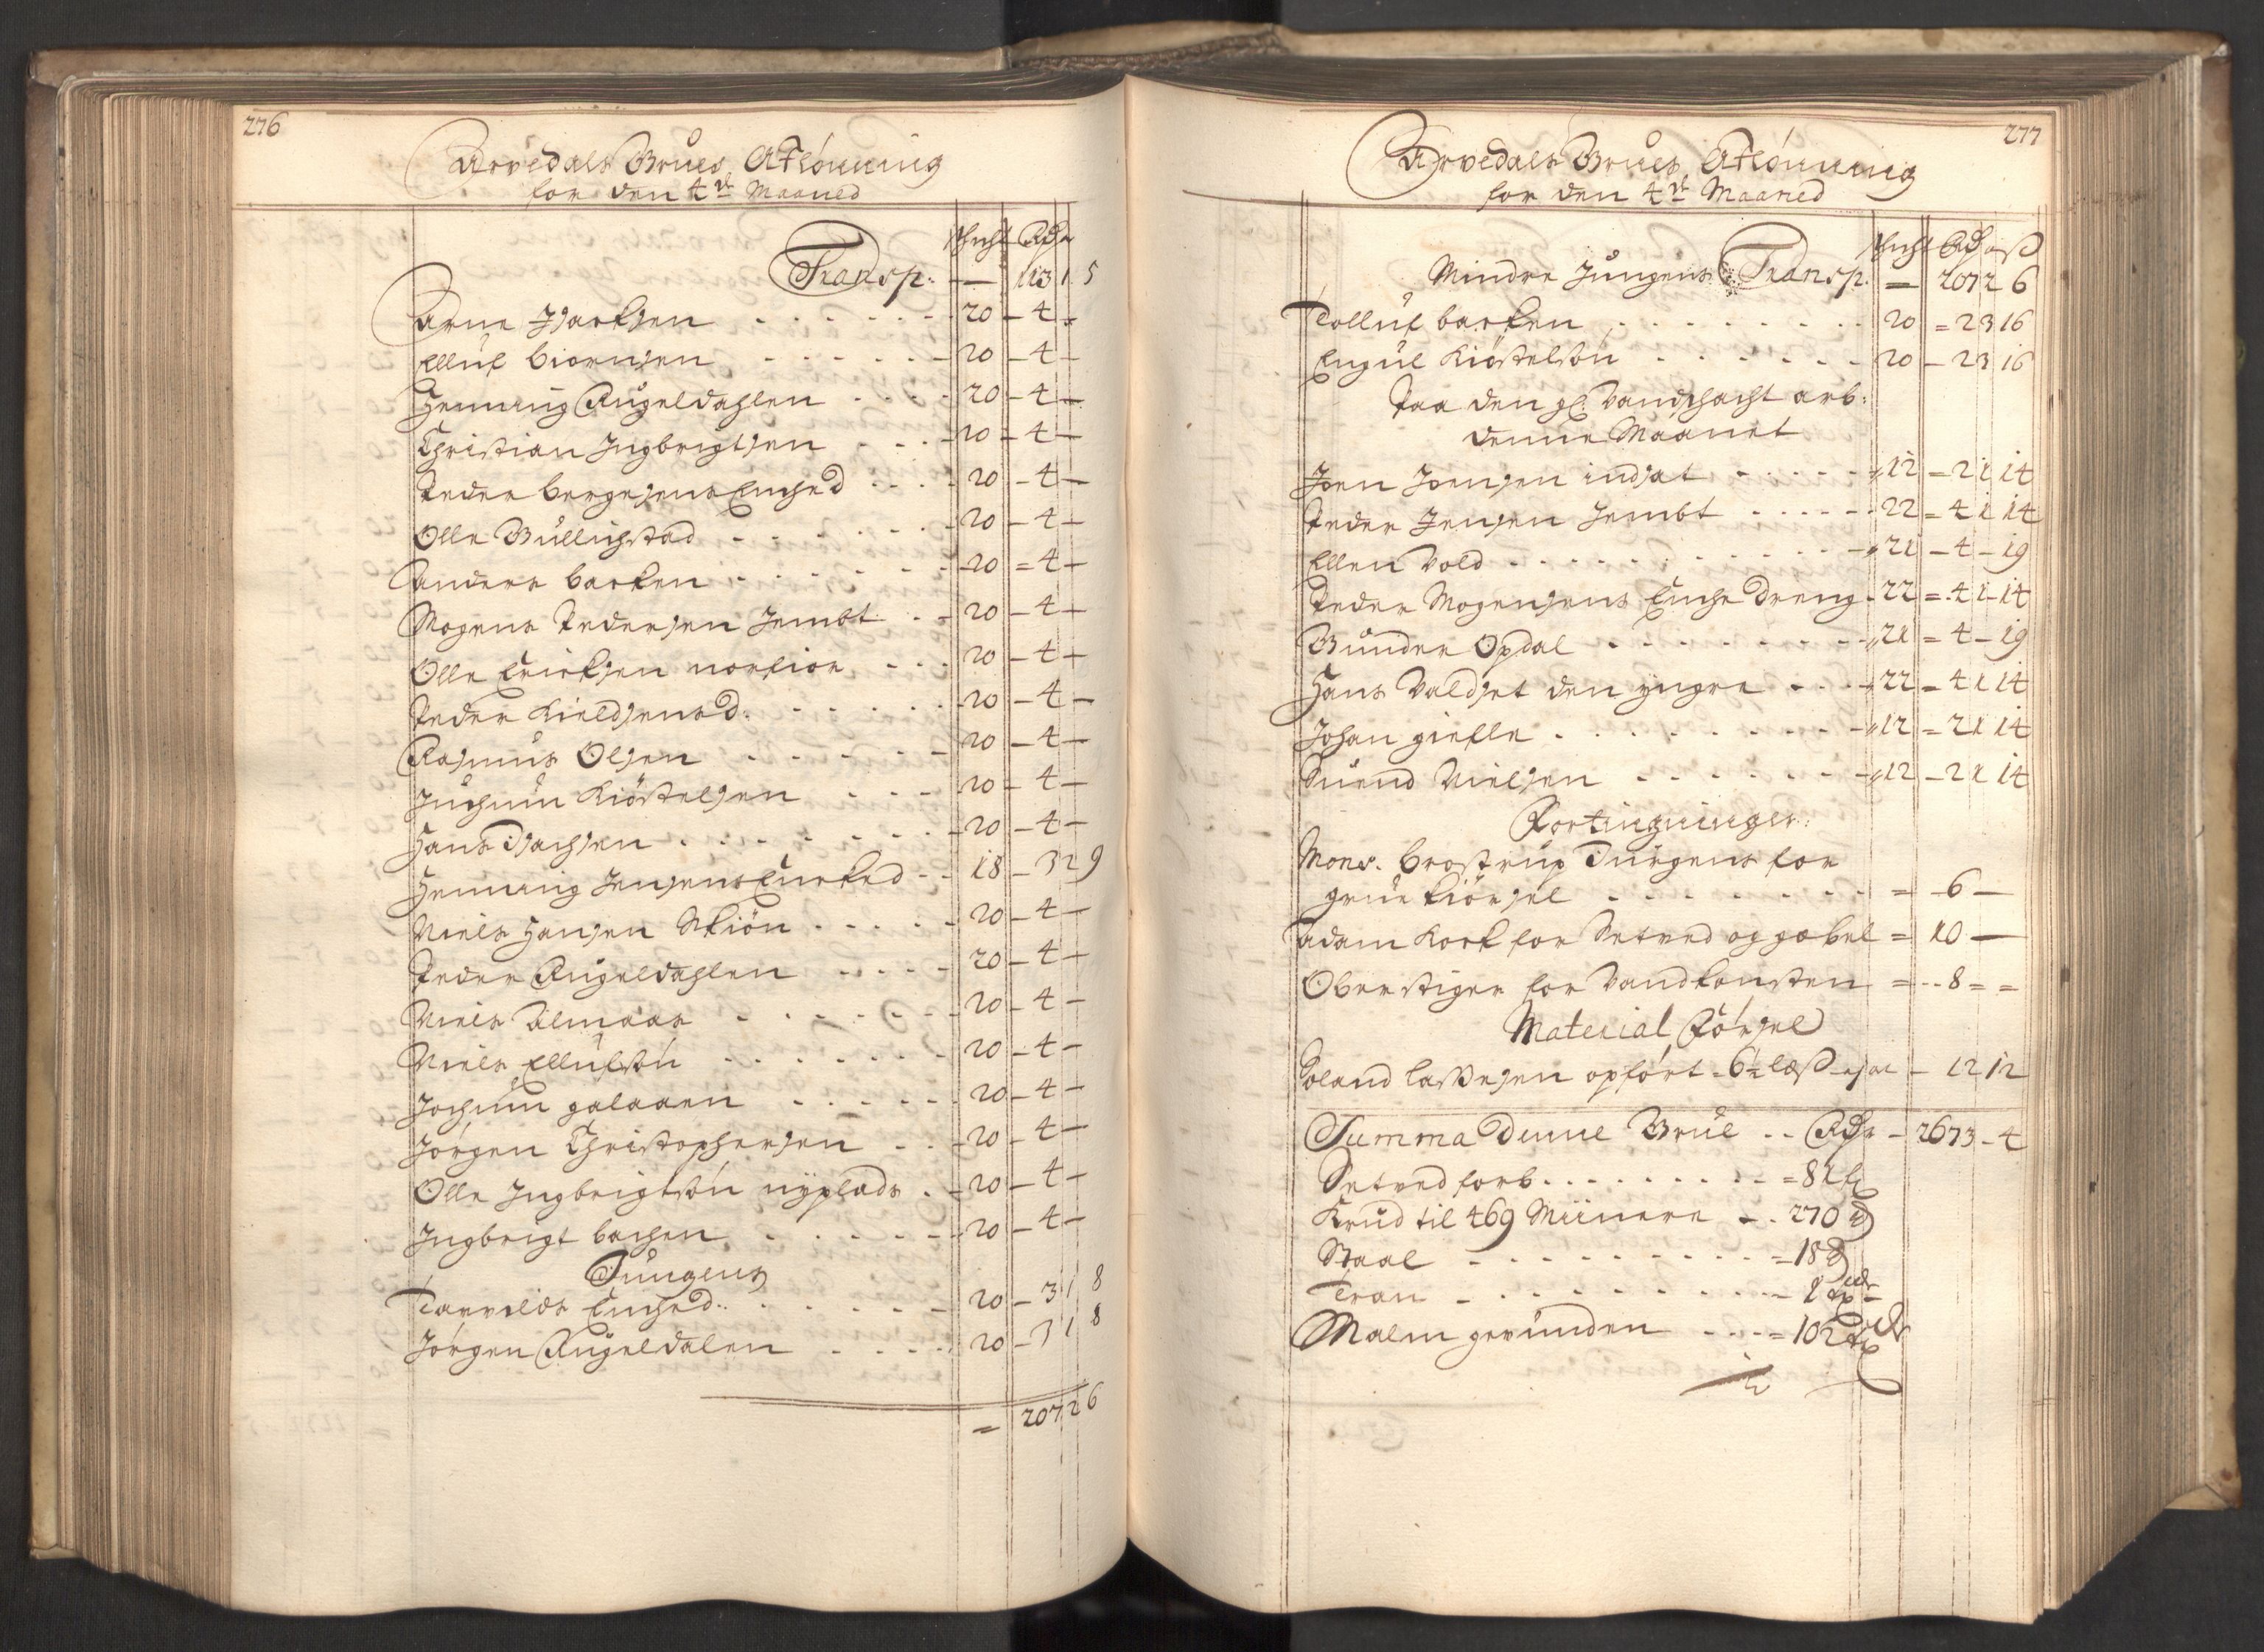 276
Arvedals Grues Aflønning
for den 4de Maaned
Schicht Rdr
Transp: — 113 1 5
Arne Isachsen - - - - - - 20 - 4 -
Elluf Biørnsen - - - - - - 20 - 4 -
Henning Rugeldahlen - - - - 20 - 4 -
Christian Ingbrigtsen - - - 20 - 4 -
Peder Bergesens Enched - - - 20 - 4 -
Olle Gullichstad - - - - - - 20 - 4 -
Anders Backen - - - - - - - 20 = 4 -
Mogens Pedersen Jembt - - 20 - 4 -
Olle Erichsen - - - 20 - 4 -
Peder Kieldsensd. - - - - - 20 - 4 -
Rasmus Olsen - - - - - - 20 - 4 -
Jochum Kiøstelsen - - - - 20 - 4 -
Hans Isachsen - - - - - - - 20 - 4 -
Henning Jensens Encked - - 18 - 3 2 9
Niels Hansen Skiøn - - - - - 20 - 4 -
Peder Rugeldahlen - - - - 20 - 4 -
Niels Aalmaas - - - - - - - 20 - 4 -
Niels Ellufsøn - - - - - - 20 - 4 -
Jochum galaaen - - - - - - 20 - 4 -
Jørgen Christophersen - - 20 - 4 -
Olle Ingbrigtsøn nyplads - 20 - 4 -
Ingbrigt bachen - - - - - - 20 - 4 -
Jungens
Enched. - - - - - - 20 - 3 1 8
Jørgen Rugeldalen - - - - 20 - 3 1 8
= 207 2 6
277
Arvedals Grues Aflønning
for den 4de Maaned
Schicht Rdr ß
Mindre Jungens Transp. — 207 2 6
Tolluf backen - - - - - - - - - 20 = 2 3 16
Engul Kiøstelsøn - - - - - - 20 - 2 3 16
Paa den gl. Vandschacht arb:
denne Maanet
Joen Joensen indsat - - - - - 12 = 2 1 14
Peder Jensen Jembt - - - - - 22 = 4 1 14
Ellen Vold - - - - - - - - - - 21 - 4 - 19
Peder Mogensens Enche dreng - 22 = 4 1 14
Gunder Opdal - - - - - - - - - 21 = 4 - 19
Hans Valdset den yngre - - - 22 = 4 1 14
Johan gielle - - - - - - - - - 12 = 2 1 14
Suend Nielsen - - - - - - - 12 - 2 1 14
Fortingninger:
Mons. Brostrup Jürgens for
grue kiørsel - - - - - - - - = - 6 -
Adam Kock for Setved og gøbel = 10 —
Oberstiger for Vandkonsten = - - 8 = =
Material Førsel
Roland Lassesen opført - 6½ læss - 12 12
Summa denne Grue - - Rdr - 267 3 - 4
Setved forb. - - - - - - - - = 81
Krud til 469 Miinere - - 270 ℔
Staal - - - - - - - - - - = 18 ℔
Tran - - - - - - - - - - 1
Malm gevunden - - - - = 102